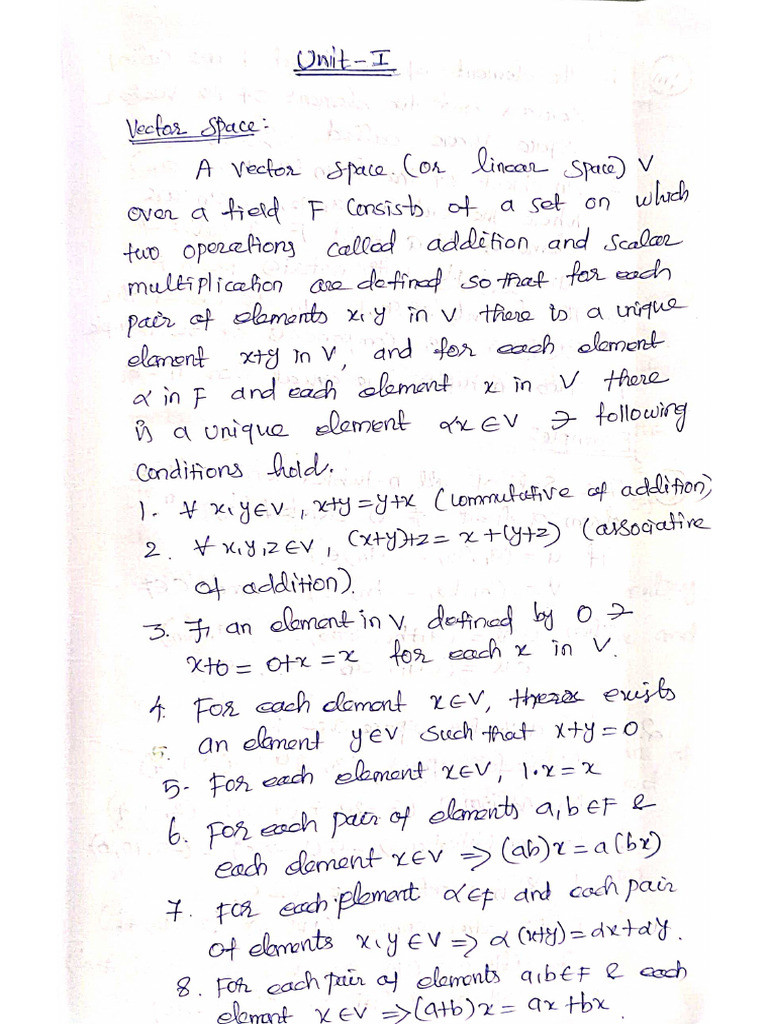 Unit-I
Vector Space:
A vector space (or linear space) V
over a field F consists of a set on which
two operations called addition and scalar
multiplication are defined so that for each
pair of elements x,y in V there is a unique
element x+y in V, and for each element
α in F and each element x in V there
is a unique element αx∈V ∋ following
Conditions hold.
1. ∀ x,y∈V, x+y=y+x (commutative of addition)
2. ∀ x,y,z∈V, (x+y)+z = x+(y+z) (associative
of addition).
3. ∃, an element in V defined by 0 ∋
x+0 = 0+x = x for each x in V.
4. For each element x∈V, there exists
5. an element y∈V such that x+y=0
5. For each element x∈V, 1.x=x
6. For each pair of elements a,b∈F &
each element x∈V ⇒ (ab)x = a(bx)
7. For each element α∈F and each pair
of elements x,y∈V ⇒ α(x+y)=αx+αy.
8. For each pair of elements a,b∈F & each
element x∈V ⇒ (a+b)x = ax+bx.